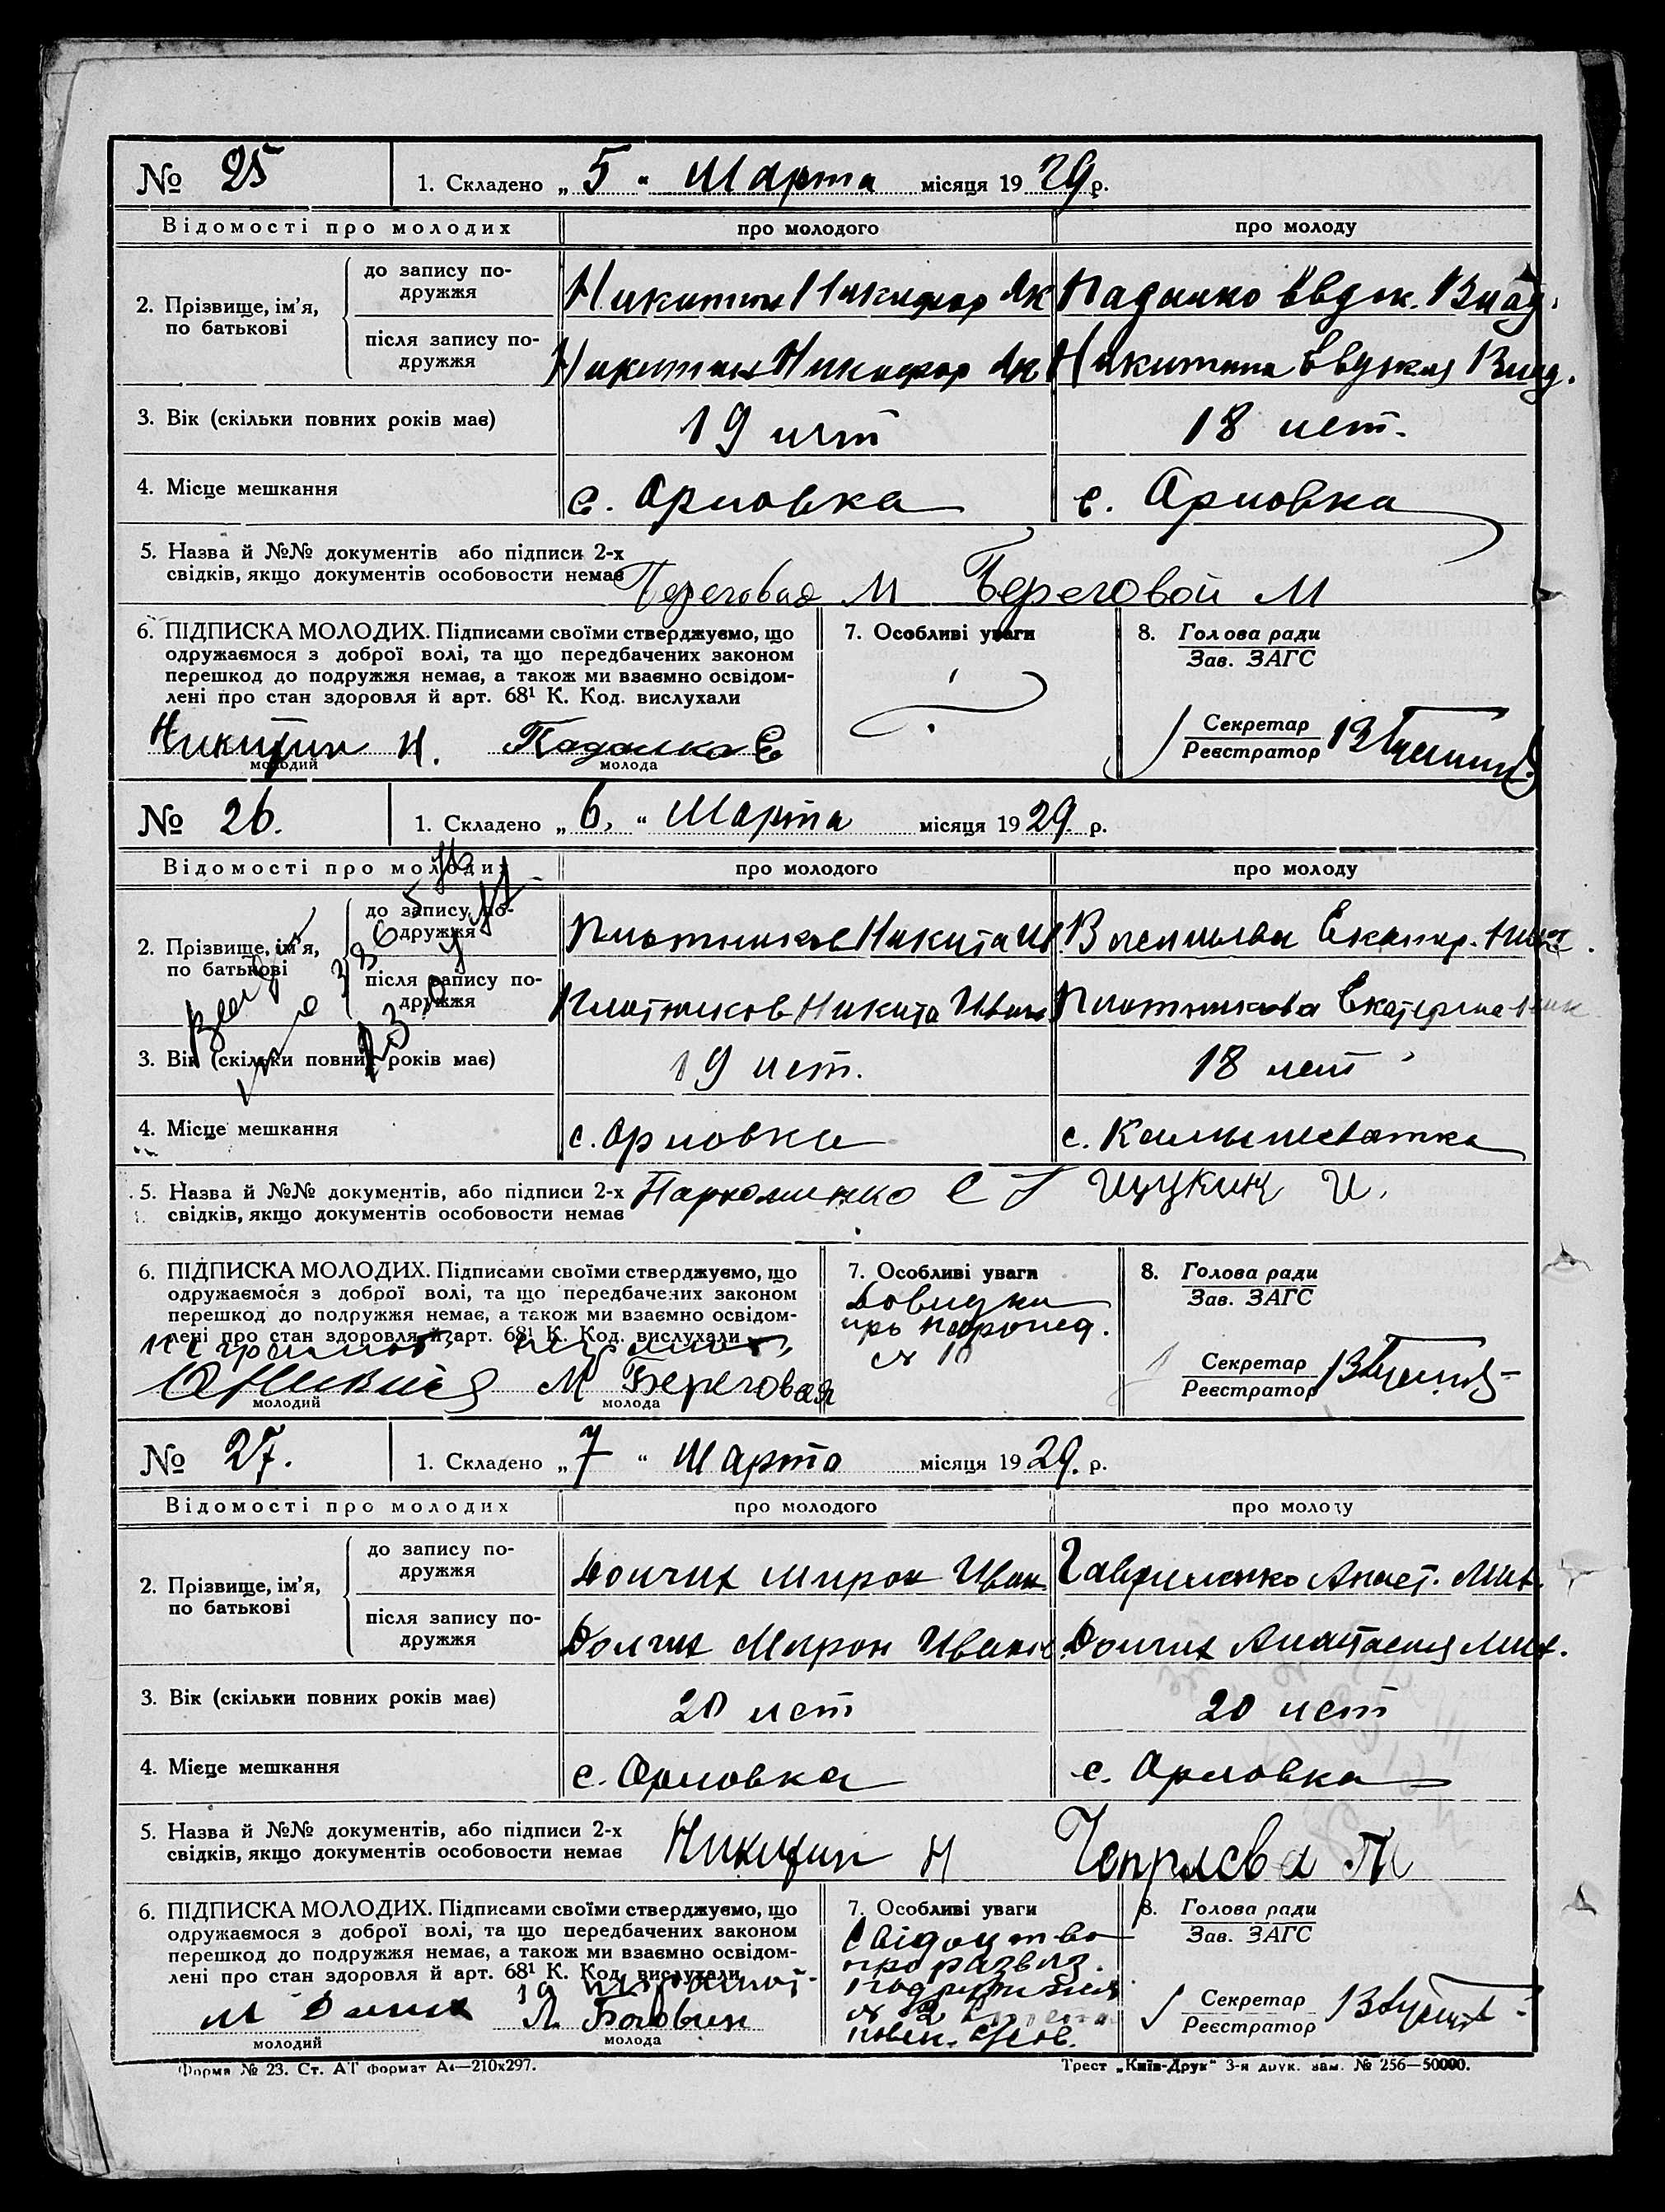 № 25 1. Складено „ 5 “ Марта місяця 1929 р.
Відомості про молодих про молодого про молоду
2. Прізвище, ім’я, по батькові
до запису подружжя Никитин Никифор Як Падалко Евдок. Влад.
після запису подружжя Никитин Никифор Як Никитина Евдокия Влад.
3. Вік (скільки повних років має) 19 лет 18 лет.
4. Місце мешкання с. Орловка с. Орловка
5. Назва й №№ документів або підписи 2-х
свідків, якщо документів особовости немає Береговая М Береговой М
6. ПІДПИСКА МОЛОДИХ. Підписами своїми стверджуємо, що
одружаємося з доброї волі, та що передбачених законом
перешкод до подружжя немає, а також ми взаємно освідом-
лені про стан здоровля й арт. 68¹ К. Код. вислухали
Никитин Н. Падалка Е
молодий молода
7. Особливі уваги
8. Голова ради
Зав. ЗАГС
Секретар
Реєстратор
№ 26. 1. Складено „ 6, “ Марта місяця 1929. р.
Відомості про молодих про молодого про молоду
2. Прізвище, ім’я, по батькові
до запису подружжя Плотников Никита Ив Васильева Екатер.
після запису подружжя Плотников Никита Иван Плотникова Екатерина
3. Вік (скільки повних років має) 19 лет. 18 лет
4. Місце мешкання с. Орловка с. Калмиковатка
5. Назва й №№ документів, або підписи 2-х
свідків, якщо документів особовости немає Пархоменко С Щукин И.
6. ПІДПИСКА МОЛОДИХ. Підписами своїми стверджуємо, що
одружаємося з доброї волі, та що передбачених законом
перешкод до подружжя немає, а також ми взаємно освідом-
лені про стан здоровля й арт. 68¹ К. Код. вислухали
М Береговая
молодий молода
7. Особливі уваги
Довидка
про народ.
№ 10
8. Голова ради
Зав. ЗАГС
Секретар
Реєстратор
№ 27. 1. Складено „ 7 “ Марта місяця 1929. р.
Відомості про молодих про молодого про молоду
2. Прізвище, ім’я, по батькові
до запису подружжя Долгих Мирон Иван. Гавриленко Анаст. Мих.
після запису подружжя Долгих Мирон Иванов Долгих Анастасия Мих.
3. Вік (скільки повних років має) 20 лет 20 лет
4. Місце мешкання с. Орловка с. Орловка
5. Назва й №№ документів, або підписи 2-х
свідків, якщо документів особовости немає Никитин Н Чепраєва П
6. ПІДПИСКА МОЛОДИХ. Підписами своїми стверджуємо, що
одружаємося з доброї волі, та що передбачених законом
перешкод до подружжя немає, а також ми взаємно освідом-
лені про стан здоровля й арт. 68¹ К. Код. вислухали
молодий молода
7. Особливі уваги
Свідоцтво
про развяз.
№ 2
8. Голова ради
Зав. ЗАГС
Секретар
Реєстратор
Форма № 23. Ст. АТ формат А4—210х297. Трест „Київ-Друк“ 3-я друк. зам. № 256—50000.